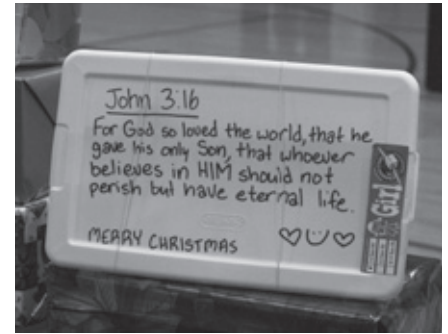 John 3:16
For God so loved the world, that he
gave his only Son, that whoever
believes in HIM should not
perish but have eternal life.
MERRY CHRISTMAS
Girl